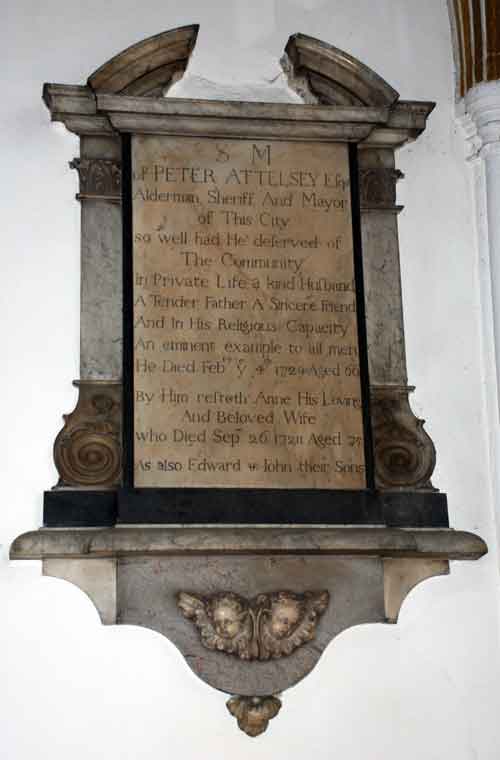 S M
of PETER ATTELSEY Esqr
Alderman, Sheriff, And Mayor
of This City
so well had He deserved of
The Community
in Private Life a kind Husband
A Tender Father A Sincere Friend
And In His Religious Capacity
An eminent example to all men
He Died Feb ye 4th Aged
By Him resteth Anne His Loving
And Beloved Wife
who Died Sep 26 Aged
As also Edward & Iohn their Sons